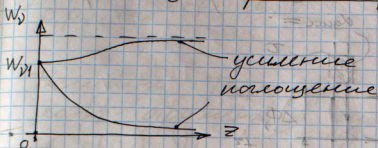 Wν
Wν1
усиление
поглощение
0
z